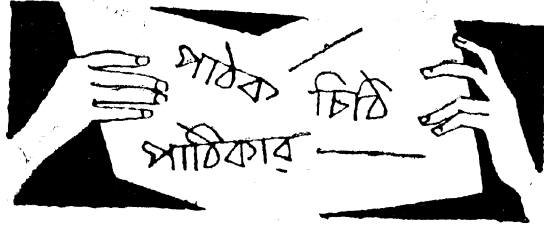 পাঠক /
পাঠিকার —
চিঠি